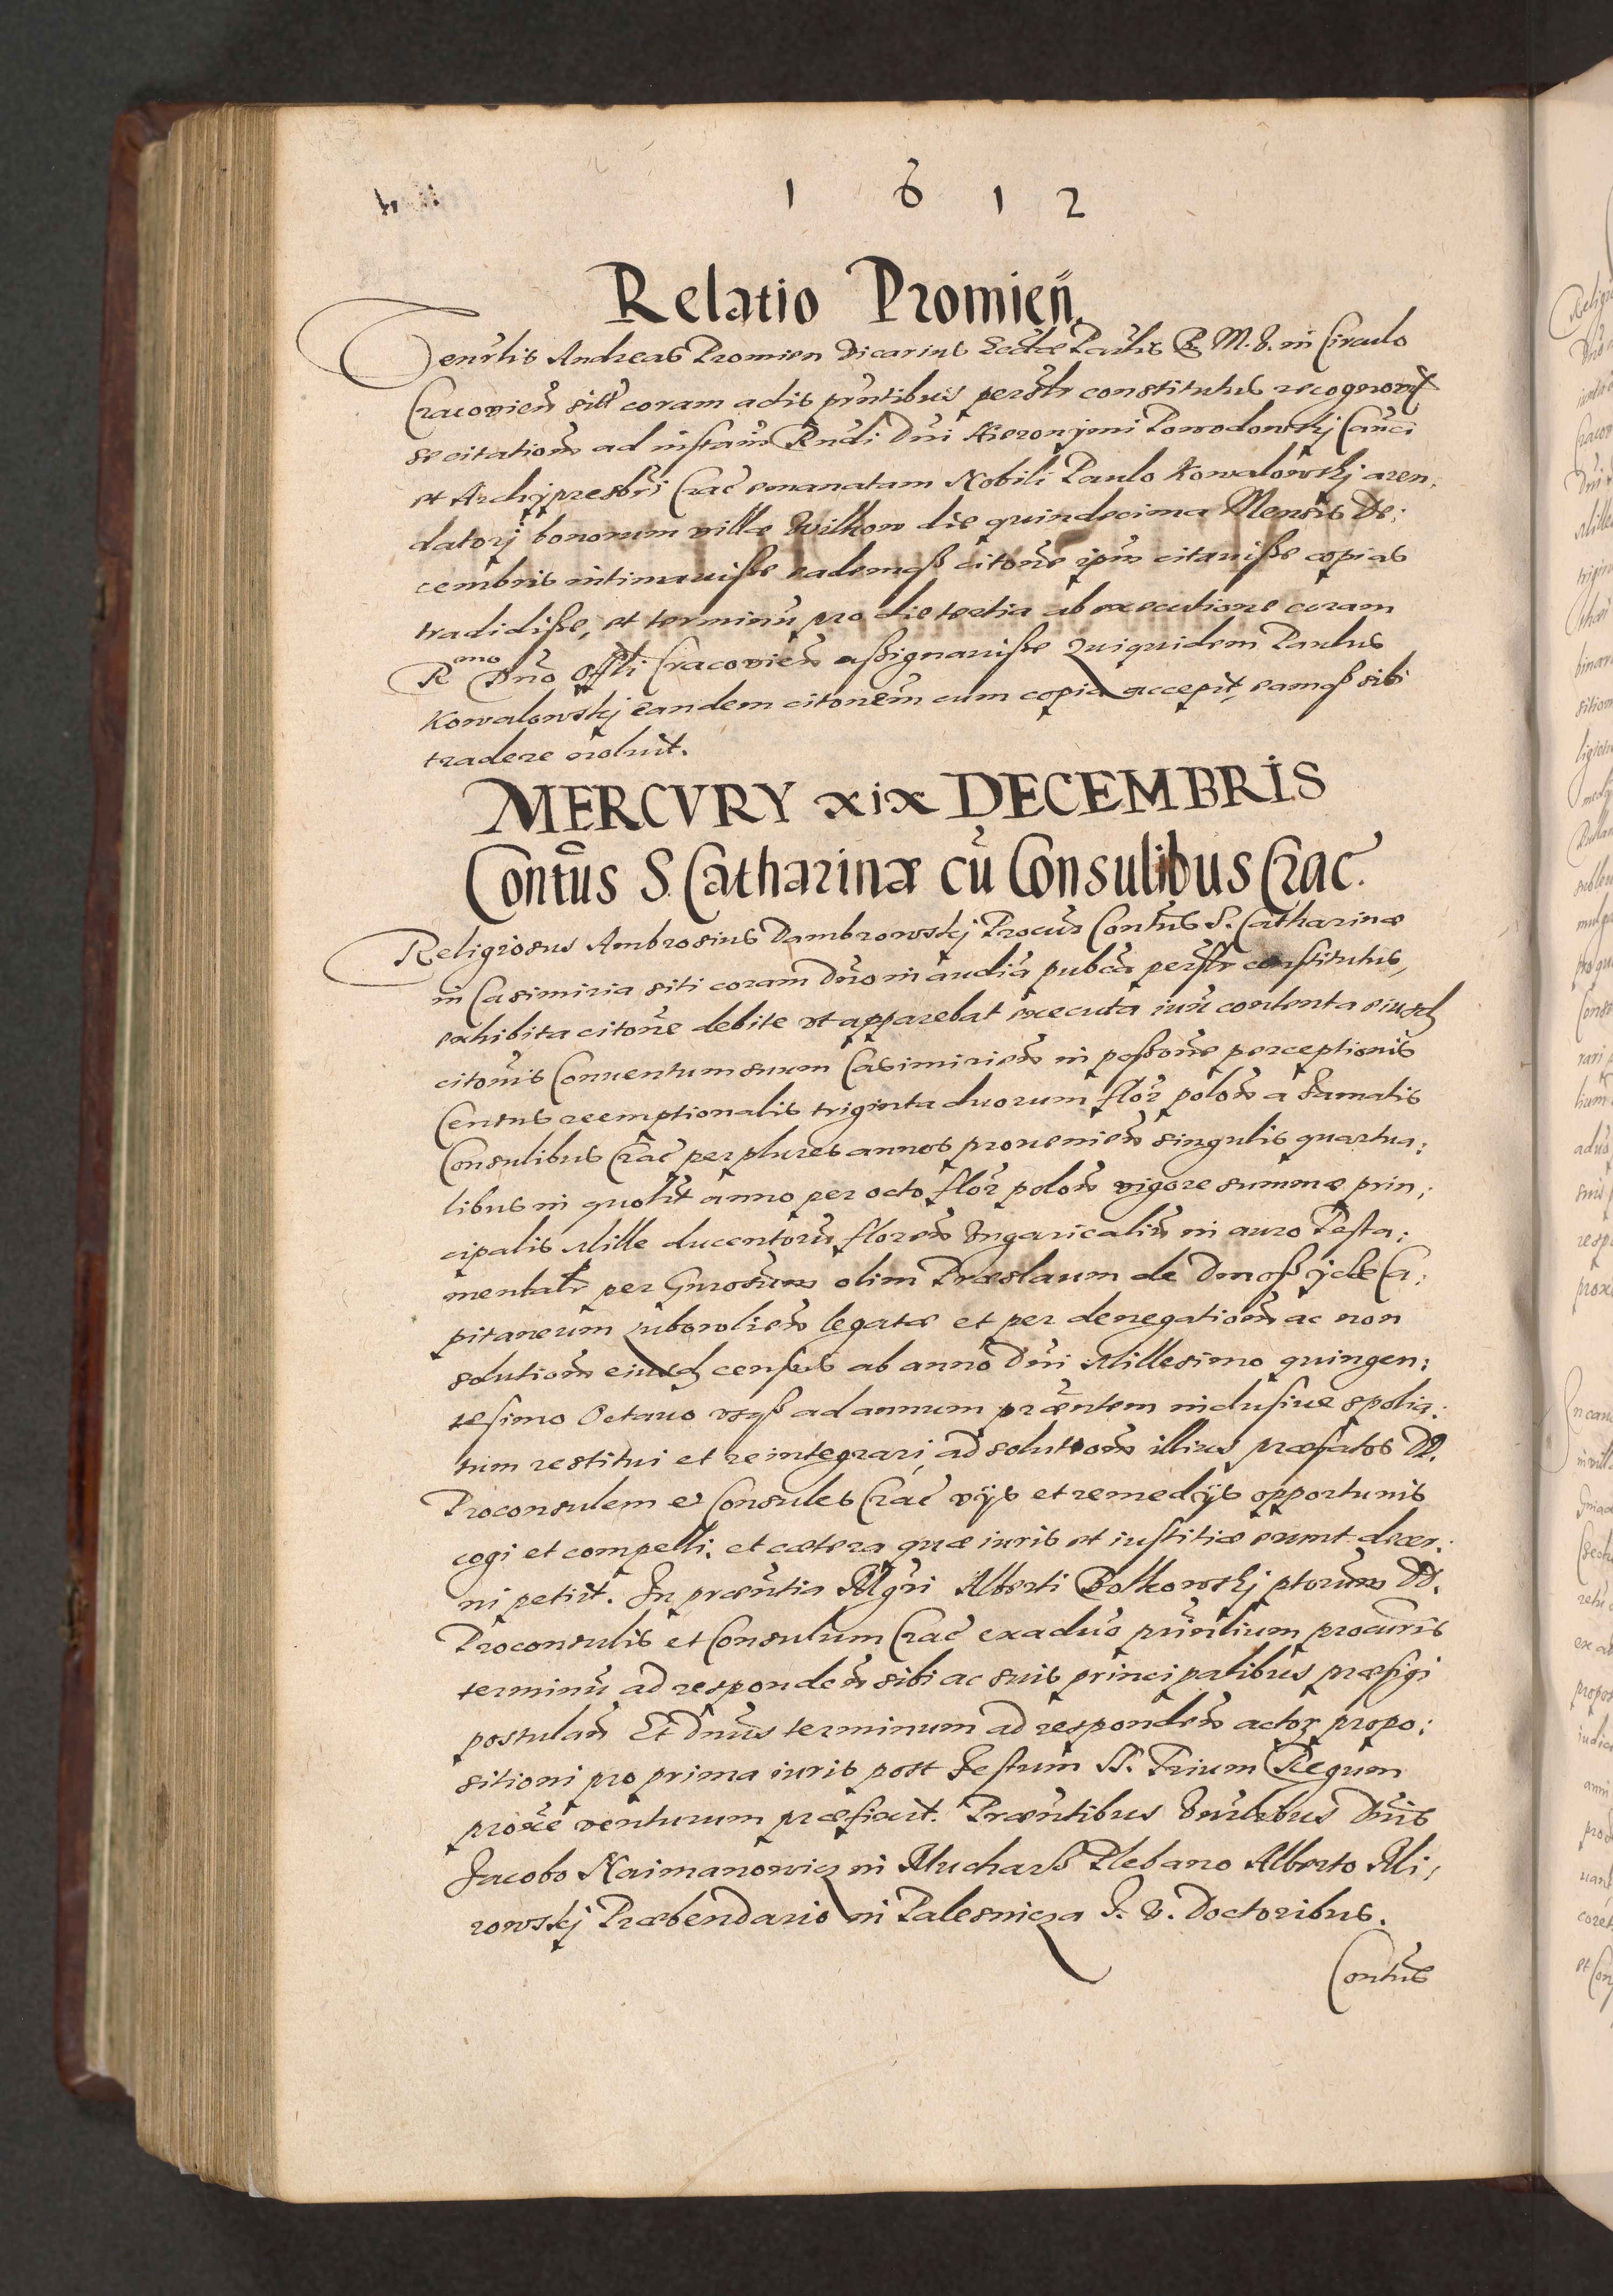 1 6 1 2
Relatio Promień.
Venrlis Andreas Promien Vicarius Eccliæ Parlis B. M. V. in Circulo
Cracovień sitæ coram actis pñtibus persolr constitutus recognovit
se citationẽ ad instañ Rndi Dni Hieronymi Powodowskj Cañci
et Archypresbri Crac̃ emanatam Nobili Paulo Kowalowskj aren:
datorj bonorum villæ Wilkow die quindecima Mensis De:
cembris intimauisse eademq3 citone ipm̃ citauisse copias
tradidisse, et terminũ pro die tertia ab executione coram
Rmo Dno Offli Cracovień assignauisse Quiquidem Paulus
Kowalowskj eandem citonem̃ cum copia accepit, eamq3 sibi
tradere noluit.
MERCVRY xix DECEMBRIS
Contũs S. Catharinæ cũ Consulibus Crac̃.
Religiosus Ambrosius Dambrowskj Procur Contũs S. Catharinæ
in Casimiria siti coram Dno in audiã pubca persolr constitutus,
exhibita citone debite vt apparebat executa iux̃ contenta eiusd
citonis Conuentum suum Casimirień in possone perceptionis
Census reemptionalis triginta duorum flor̃ poloñ a Famatis
Consulibus Crac̃ per plures annos prouenień singulis quartua:
libus in quolt anno per octo flor̃ poloñ vigore summæ prin:
cipalis Mille ducentorũ floreñ Vngaricaliũ in auro Testa:
mentalr per Gnrosum olim Præslaum de Capitaneum legatæ et per denegationẽ ac non
solutionẽ eiusd census ab anno Dni Millesimo quingen:
tesimo Octauo vsq3 ad annum præntem inclusiue spolia:
tum restitui et reintegrari, ad solutionẽ illius præfatos DD.
Proconsulem et Consules Crac̃ vijs et remedijs opportunis
cogi et compelli, et cætera quæ iuris et iustitiæ erunt decer:
ni petiit. In præntia Mgri Alberti Bolkowskj ptorum DD.
Proconsulis et Consulum Crac̃ ex aduo prinlium procuris
terminũ ad respondeñ sibi ac suis principalibus præfigi
postulañ Et Dnus terminum ad respondeñ actor propo:
sitioni pro prima iuris post Festum SS. Trium Regum
proxe venturum præfixit. Præntibus Vnrlibus Dnis
Jacobo Naimanowicz in Mucharz Plebano Alberto Mi:
rowskj Præbendario in Palesnicza J. V. Doctoribus.
Contus